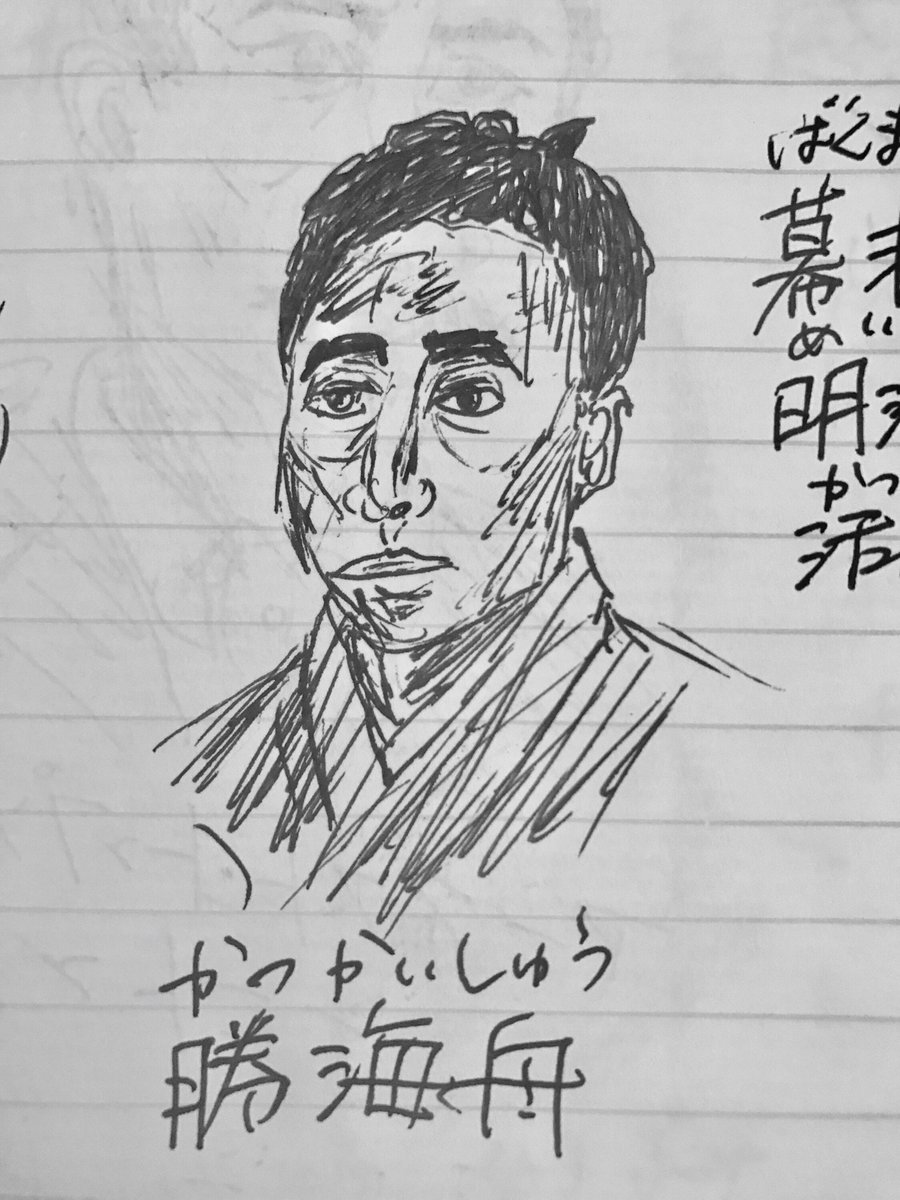 かつかいしゅう
勝海舟
ばくま
幕
め
明
かつ
活